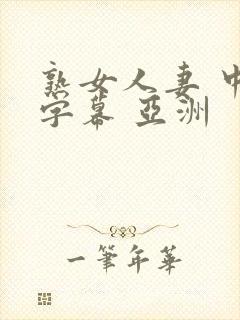 熟女人妻 中
字幕 亞洲
一筆年華